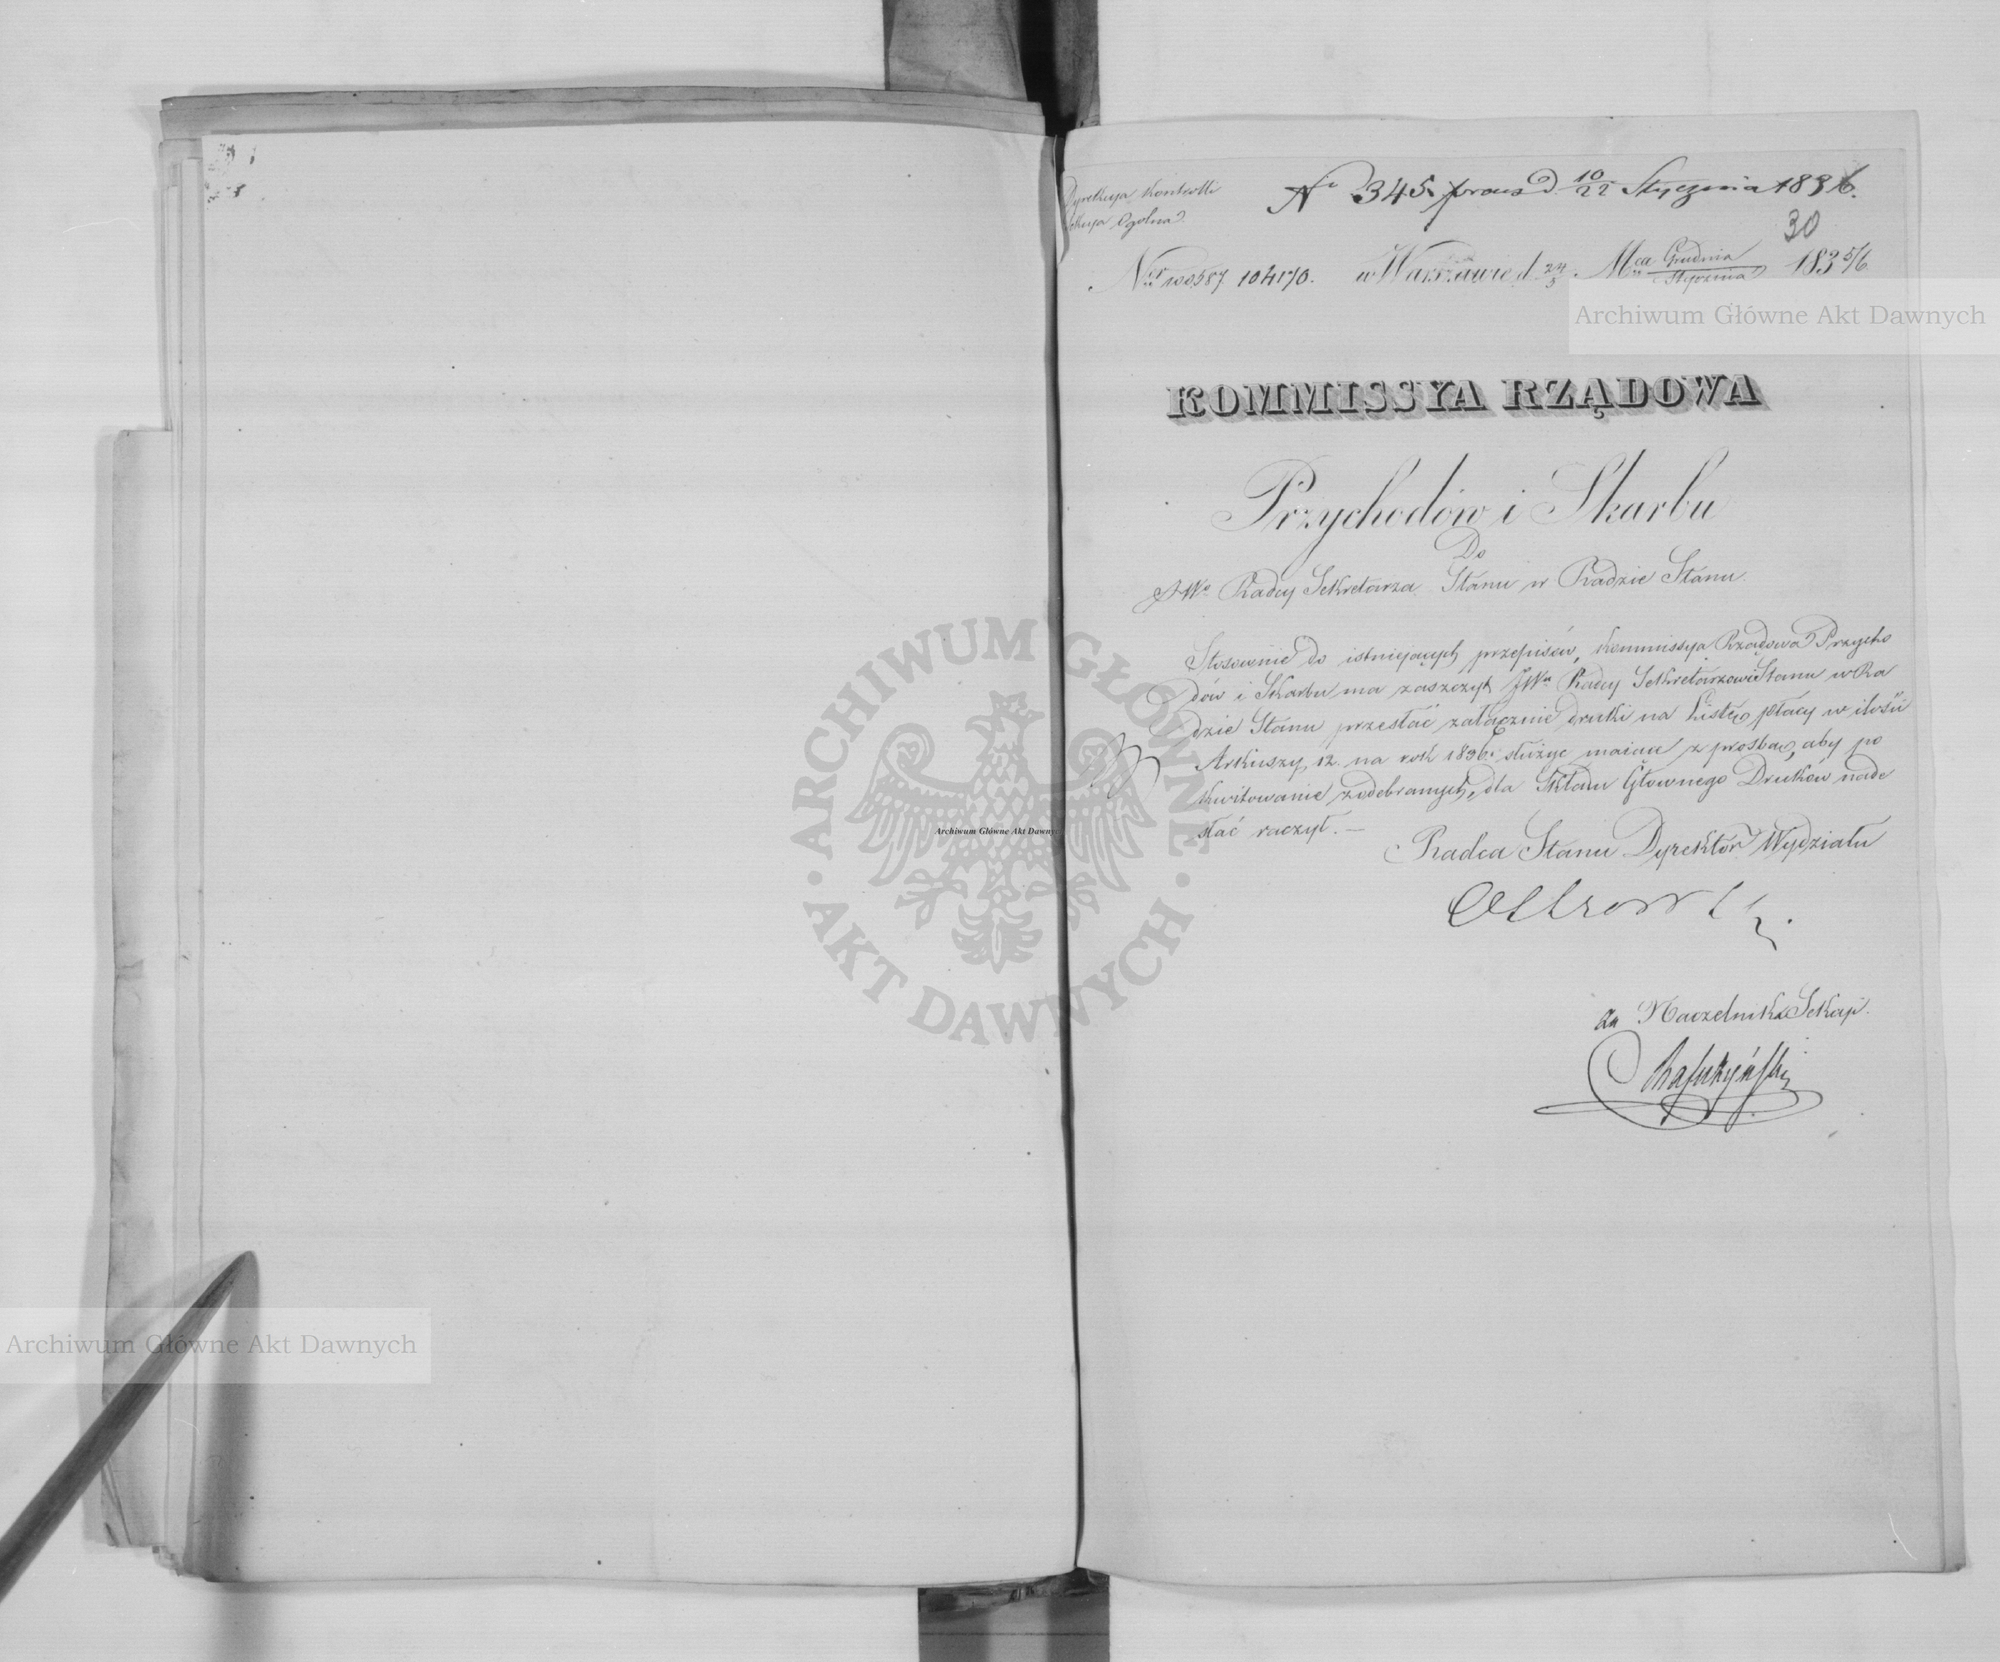 Dyrekcya Kontrolli
Sekcya Ogolna
Nr 345. praes d. 10/22 Stycznia 1836.
30
Nr 100,587. 104170. w Warszawie d. 24/5. Mca Grudnia/Stycznia 1835/6
KOMMISSYA RZĄDOWA
Przychodów i Skarbu
Do
JWo Radcy Sekretarza Stanu w Radzie Stanu.
Stosownie do istniejących przepisów, Kommissya Rządowa Przycho
dów i Skarbu ma zaszczyt JWu Radcy Sekretarzowi Stanu w Ra
dzie Stanu przesłać załącznie druki na Listę płacy w ilości
Arkuszy 12. na rok 1836. służyć maiące z prośbą, aby po
kwitowanie z odebranych, dla Składu Głownego Druków nade
słać raczył. —
Radca Stanu Dyrektor Wydziału
za Naczelnika Sekcyi.
Archiwum Główne Akt Dawnych
Archiwum Główne Akt Dawnych
Archiwum Główne Akt Dawnych
ARCHIWUM GŁÓWNE
· AKT DAWNYCH ·